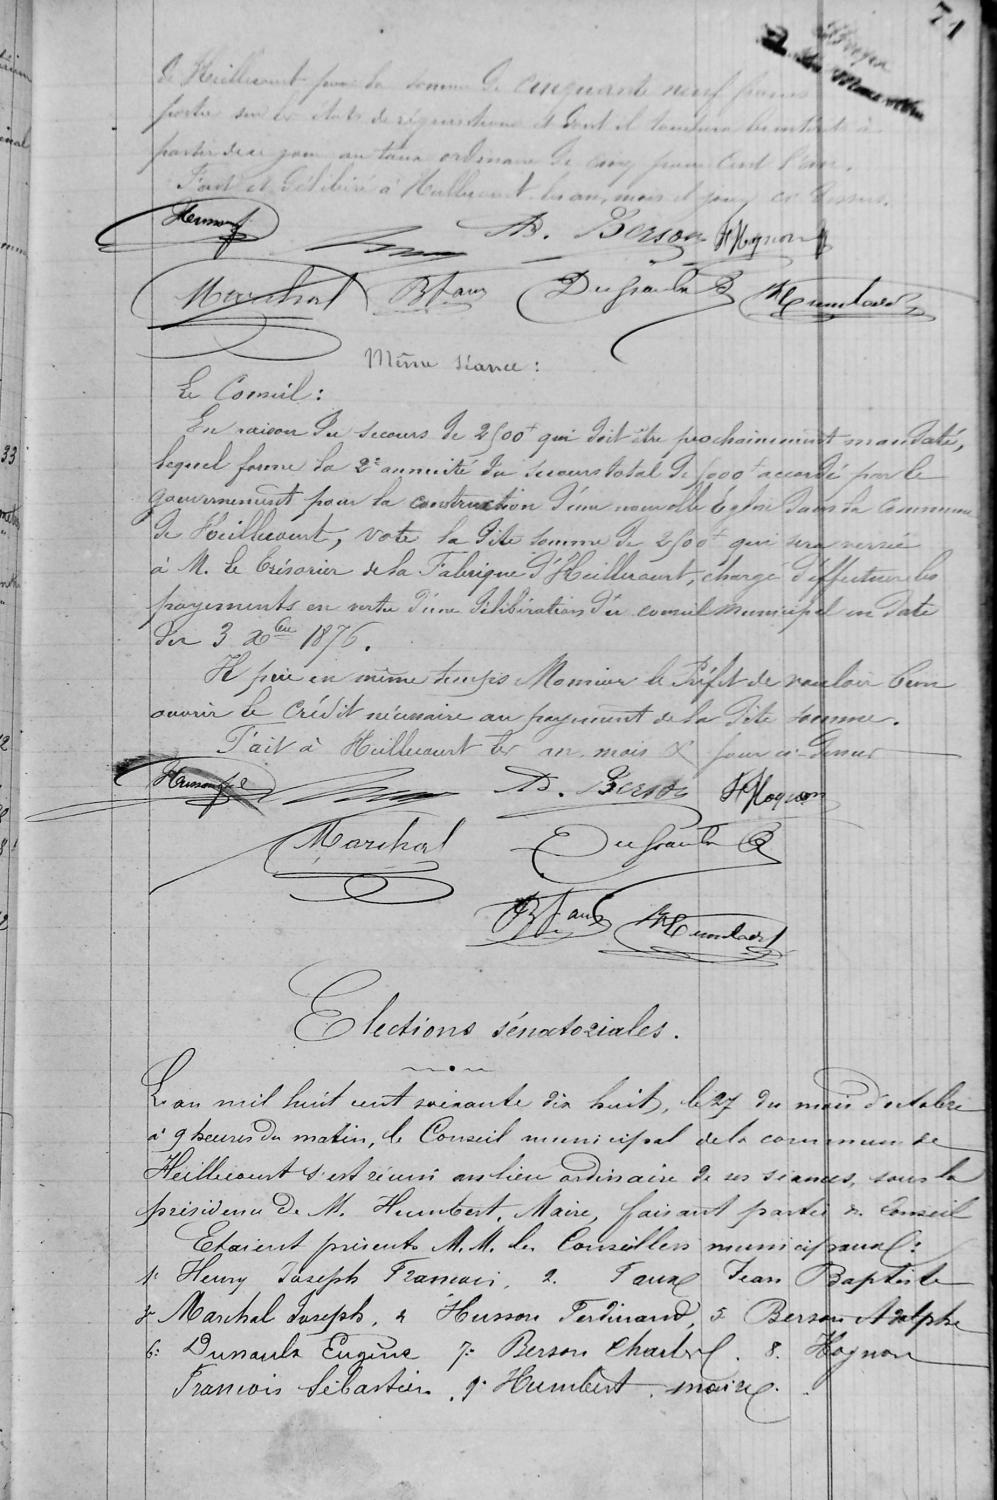 71
de Heillecourt pour la somme de cinquante neuf francs
portée sur les états de réquisitions et dont il touchera les intérêts à
partir de ce jour au taux ordinaire de cinq pour cent l'an.
Fait et délibéré à Heillecourt les an, mois et jour ci dessus.
Husson f AD. Berson F Hognon
Marchal Bt Taux Dusaulx E Humbert
Même séance :
Le Conseil :
En raison du secours de 2500f qui doit être prochainement mandaté,
lequel forme la 2e annuité du secours total de 5000f accordé par le
gouvernement pour la construction d'une nouvelle Eglise dans la Commune
de Heillecourt, vote la dite somme de 2500f qui sera versée
à M. le Trésorier de la Fabrique d'Heillecourt, chargé d'effectuer les
payements en vertu d'une délibération du conseil municipal en date
du 3 Xbre 1876.
Il prie en même temps Monsieur le Préfet de vouloir bien
ouvrir le crédit nécessaire au payement de la dite somme.
Fait à Heillecourt les an, mois & jour ci-dessus
Husson f AD. Berson F Hognon
Marchal Dusaulx E
Bt Taux Humbert
Elections sénatoriales.
L'an mil huit cent soixante dix huit, le 27 du mois d'octobre
à 9 heures du matin, le Conseil municipal de la commune de
Heillecourt s'est réuni au lieu ordinaire de ses séances, sous la
présidence de M. Humbert, Maire, faisant partie du Conseil
Etaient présents M.M. les Conseillers municipaux :
1. Henry Joseph Francois, 2. Taux Jean Baptiste
3 Marchal Joseph, 4 Husson Ferdinand, 5 Berson Adolphe
6. Dusaulx Eugène 7. Berson Charles. 8. Hognon
Francois Sébastien, 9. Humbert, maire.